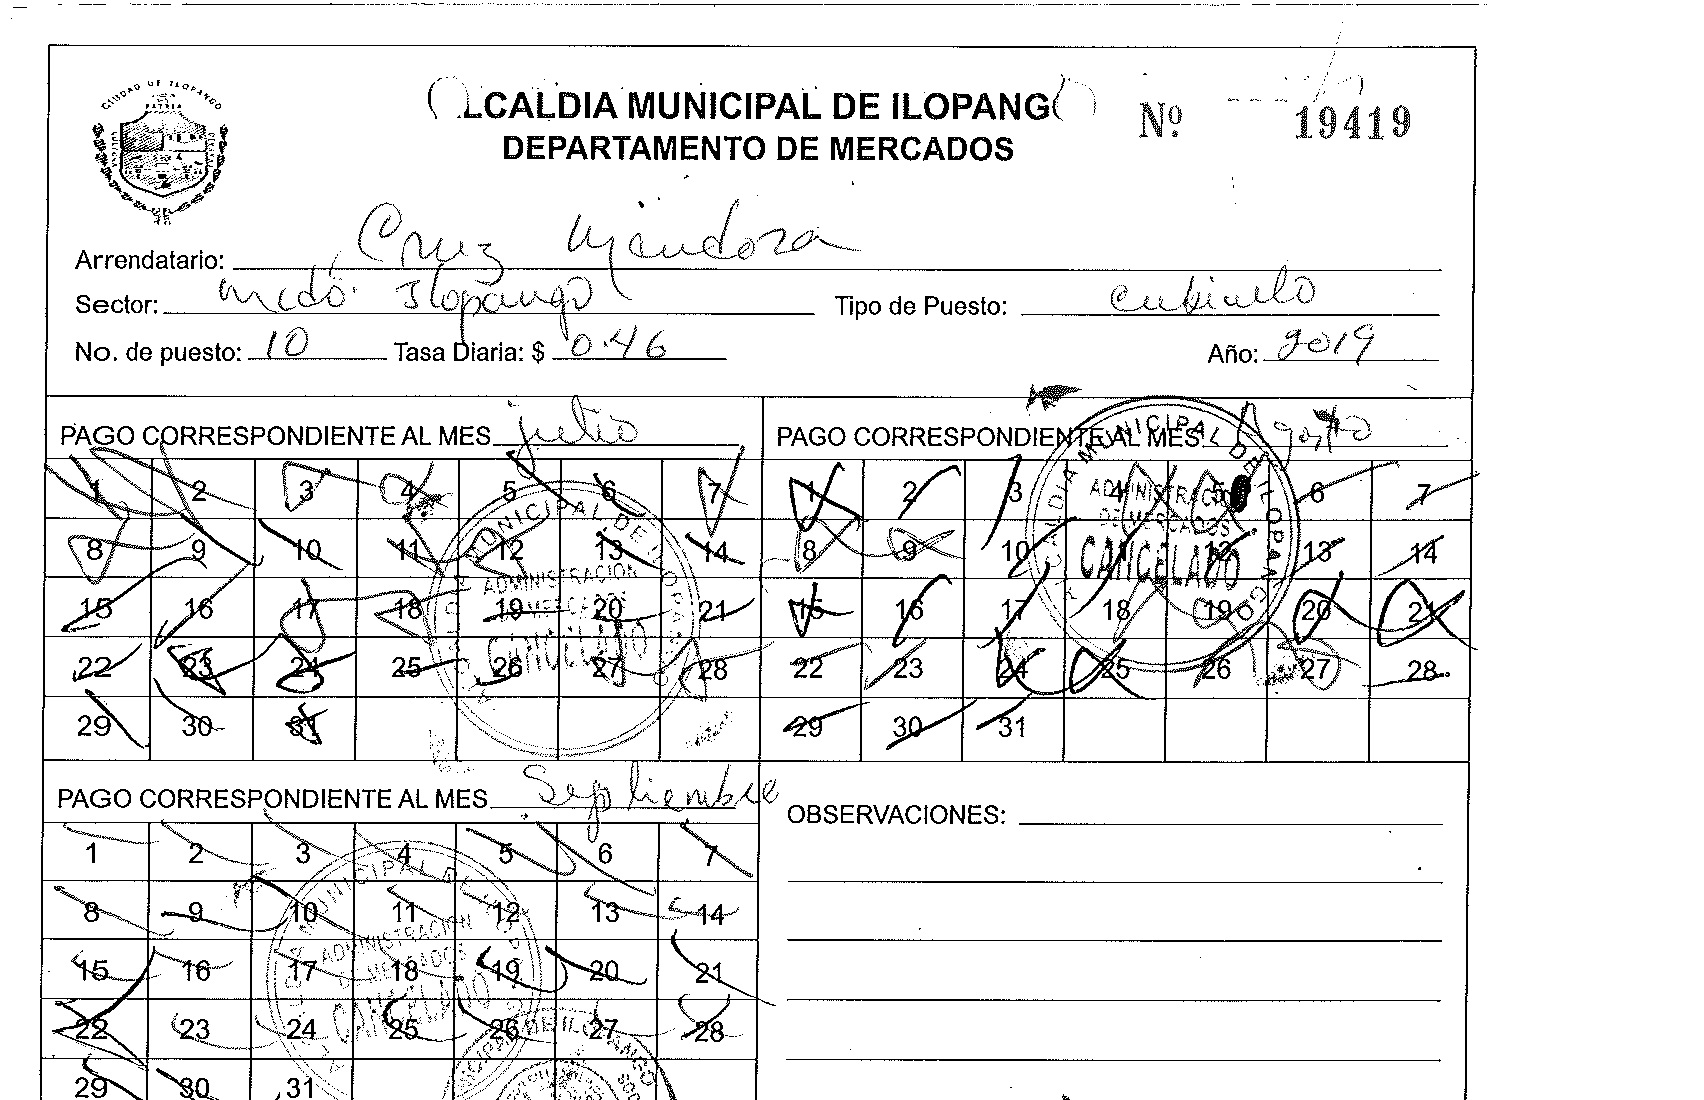 CIUDAD DE ILOPANGO
LCALDIA MUNICIPAL DE ILOPANG
Nº 19419
DEPARTAMENTO DE MERCADOS
Arrendatario: Cruz Mendoza
Sector: Mcdo. Ilopango Tipo de Puesto: cubiculo
No. de puesto: 10 Tasa Diaria: $ 0.46 Año: 2019
PAGO CORRESPONDIENTE AL MES julio
1 2 3 4 5 6 7
8 9 10 11 12 13 14
15 16 17 18 19 20 21
22 23 24 25 26 27 28
29 30 31
MUNICIPAL DE ILOPANGO
ADMINISTRACION
DE MERCADOS
CANCELADO
PAGO CORRESPONDIENTE AL MES: Agosto
1 2 3 4 5 6 7
8 9 10 11 12 13 14
15 16 17 18 19 20 21
22 23 24 25 26 27 28
29 30 31
ALCALDIA MUNICIPAL DE ILOPANGO
ADMINISTRACION
DE MERCADOS
CANCELADO
PAGO CORRESPONDIENTE AL MES Septiembre
1 2 3 4 5 6 7
8 9 10 11 12 13 14
15 16 17 18 19 20 21
22 23 24 25 26 27 28
29 30 31
MUNICIPAL DE ILOPANGO
ADMINISTRACION
DE MERCADOS
CANCELADO
OBSERVACIONES: